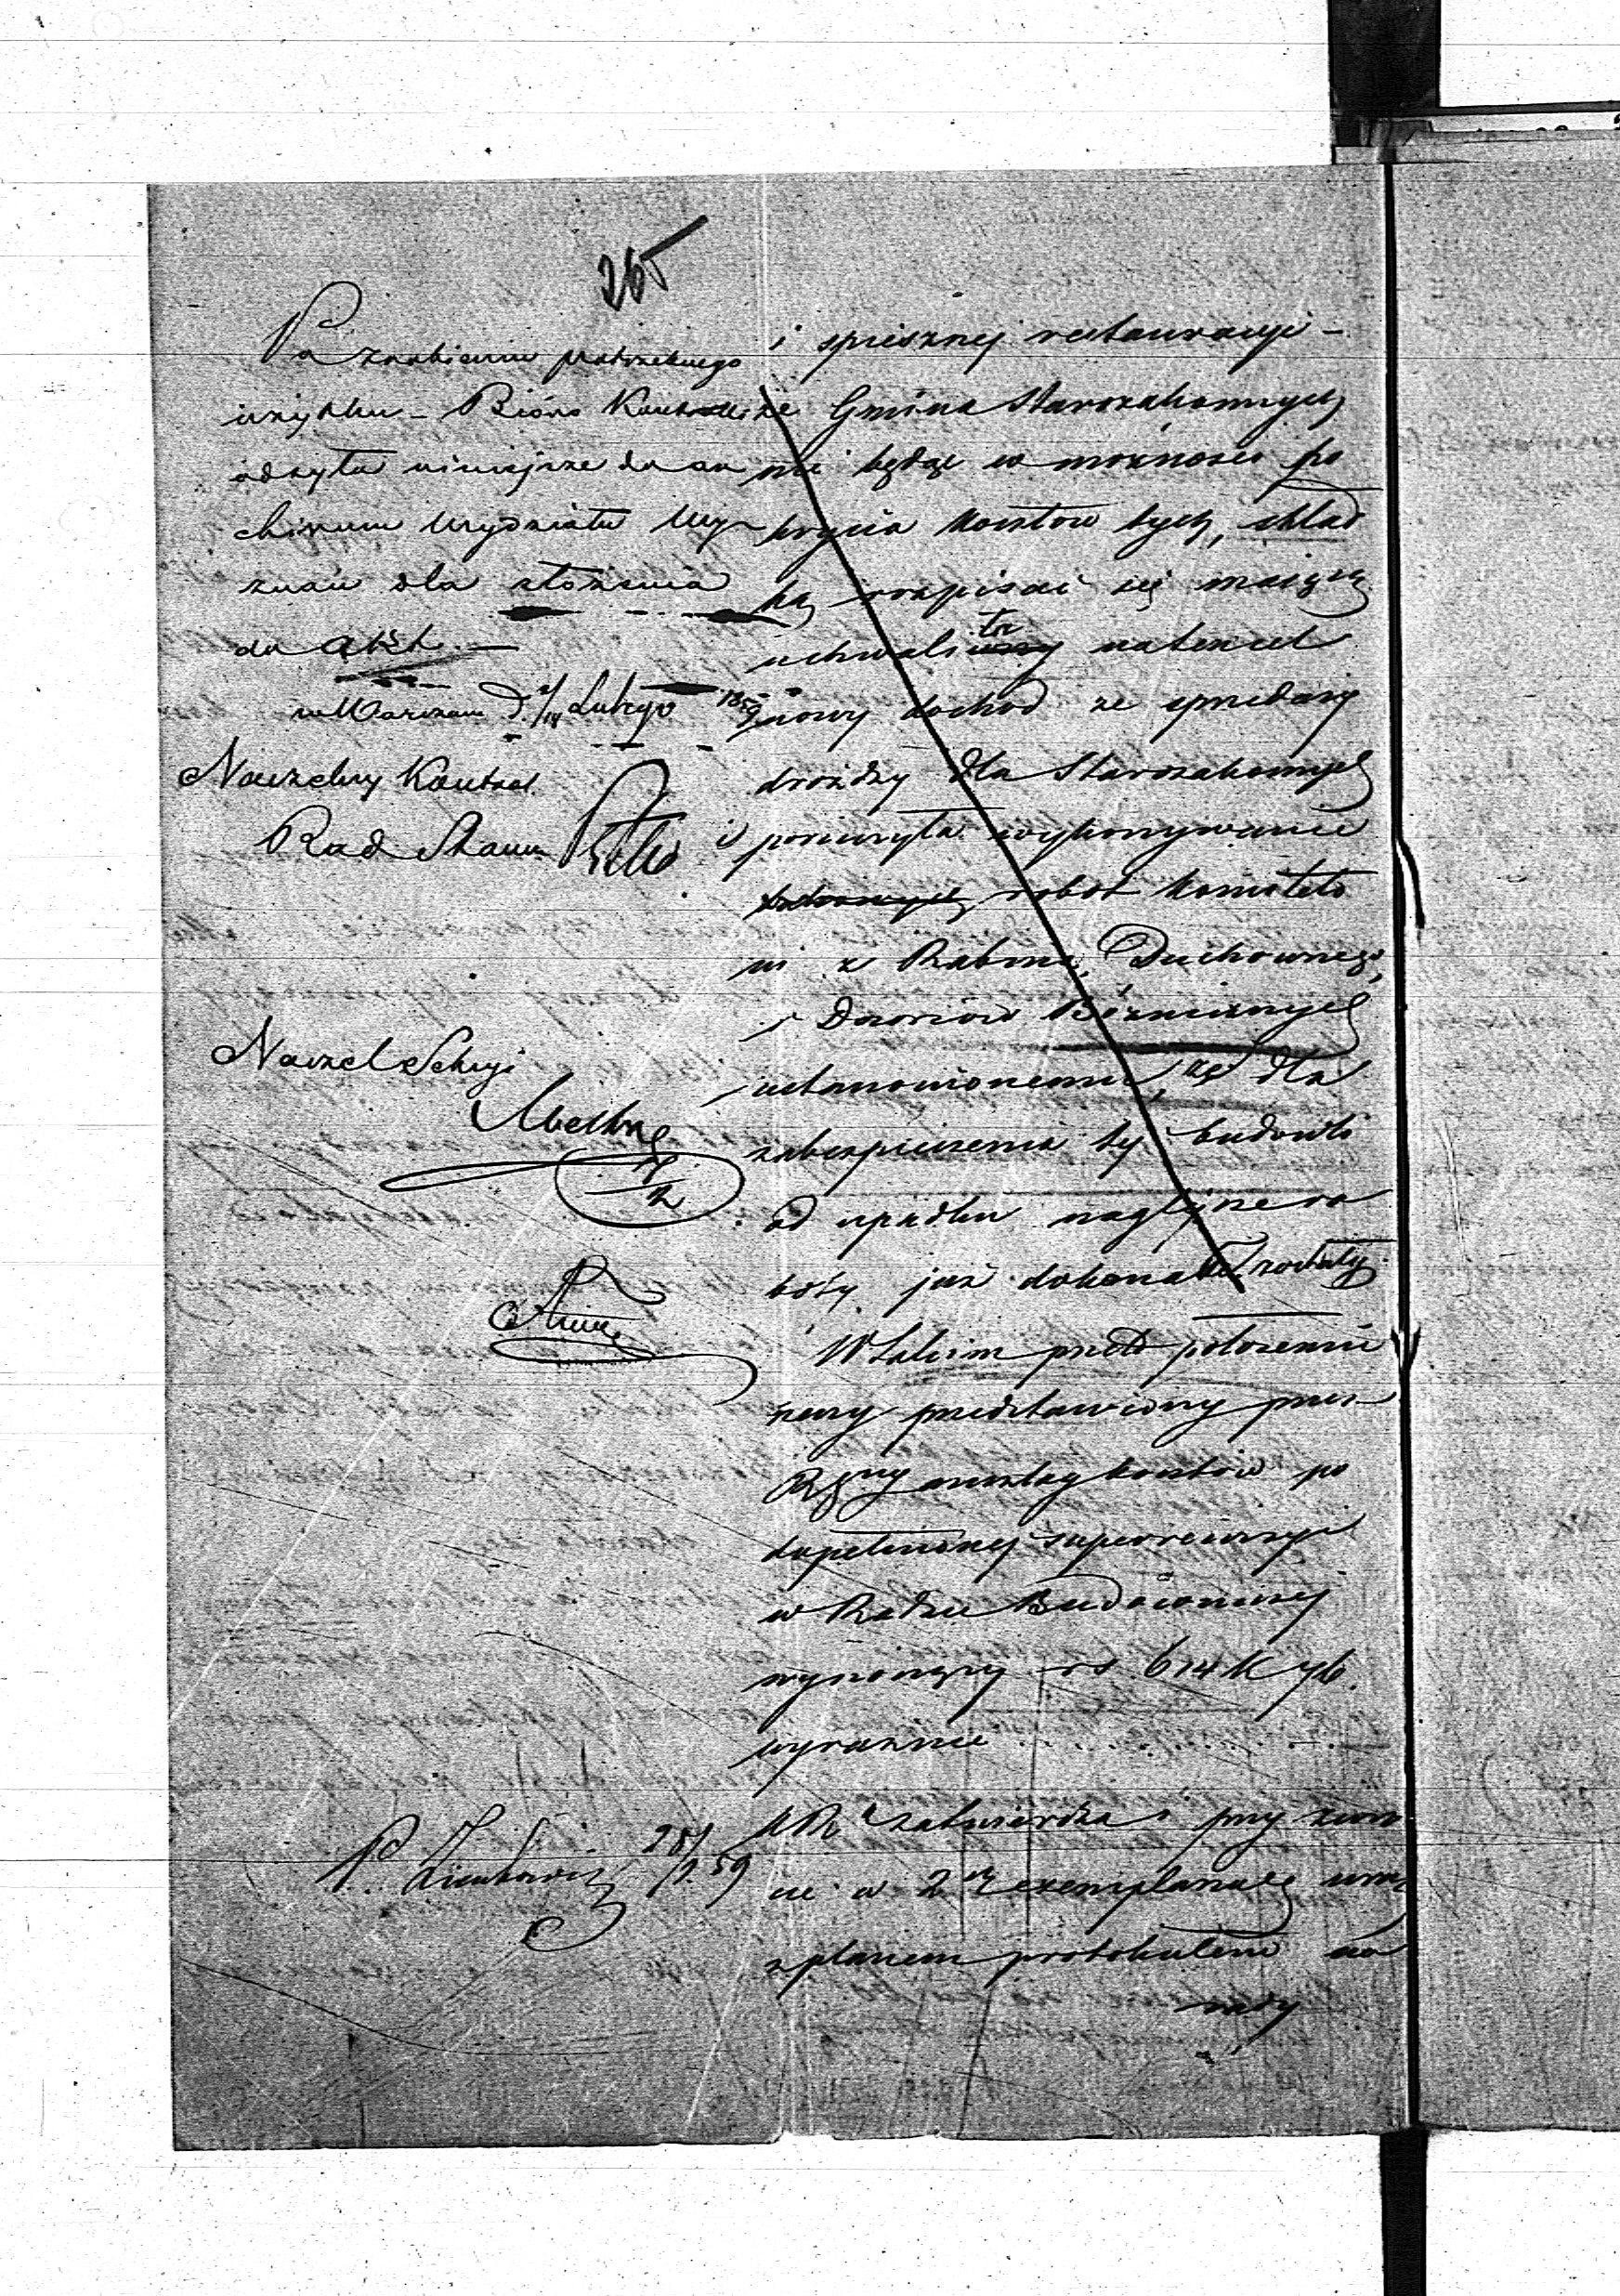 265
Po zrobieniu potrzebnego
użytku – Bióro Kontroli
odsyła niniejsze do ar
chiwum Wydziału Wy
znań dla złożenia
do akt. —
w Warszawie D. 2/14 Lutego 1859
Naczelny Kontrol.
Rad Stanu
Naczel Sekcyi
P. Zienkowicz 28/1 59
i spiesznej restauracyi –
że Gmina Starozakonnych
nie będąc w możności po
krycia kosztów tych, skład
ką rozpisać się mającą
uchwaliła natenczas
nowy dochód ze sprzedaży
drożdży dla Starozakonnych
i poruczyła wykonywanie
robót Komiteto
wi z Rabina, Duchownego,
i Dozorców Bóżniczych
ustanowionemu, że dla
zabezpieczenia tej budowli
od upadku naglejsze ro
boty już dokonane zostały.
W takim przeto położeniu
rzeczy przedstawiony przez
Rząd Gny anszlag kosztów po
dopełnionej superrewizyi
w Radzie Budowniczej
wynoszący rs 614 k 76.
wyraźnie . . . . . . .
KR. zatwierdza i przy zwro
cie w 2ch exemplarzach wraz
z planem protokułem na
rady